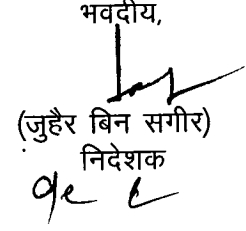 भवदीय,
(जुहैर बिन सगीर)
निदेशक